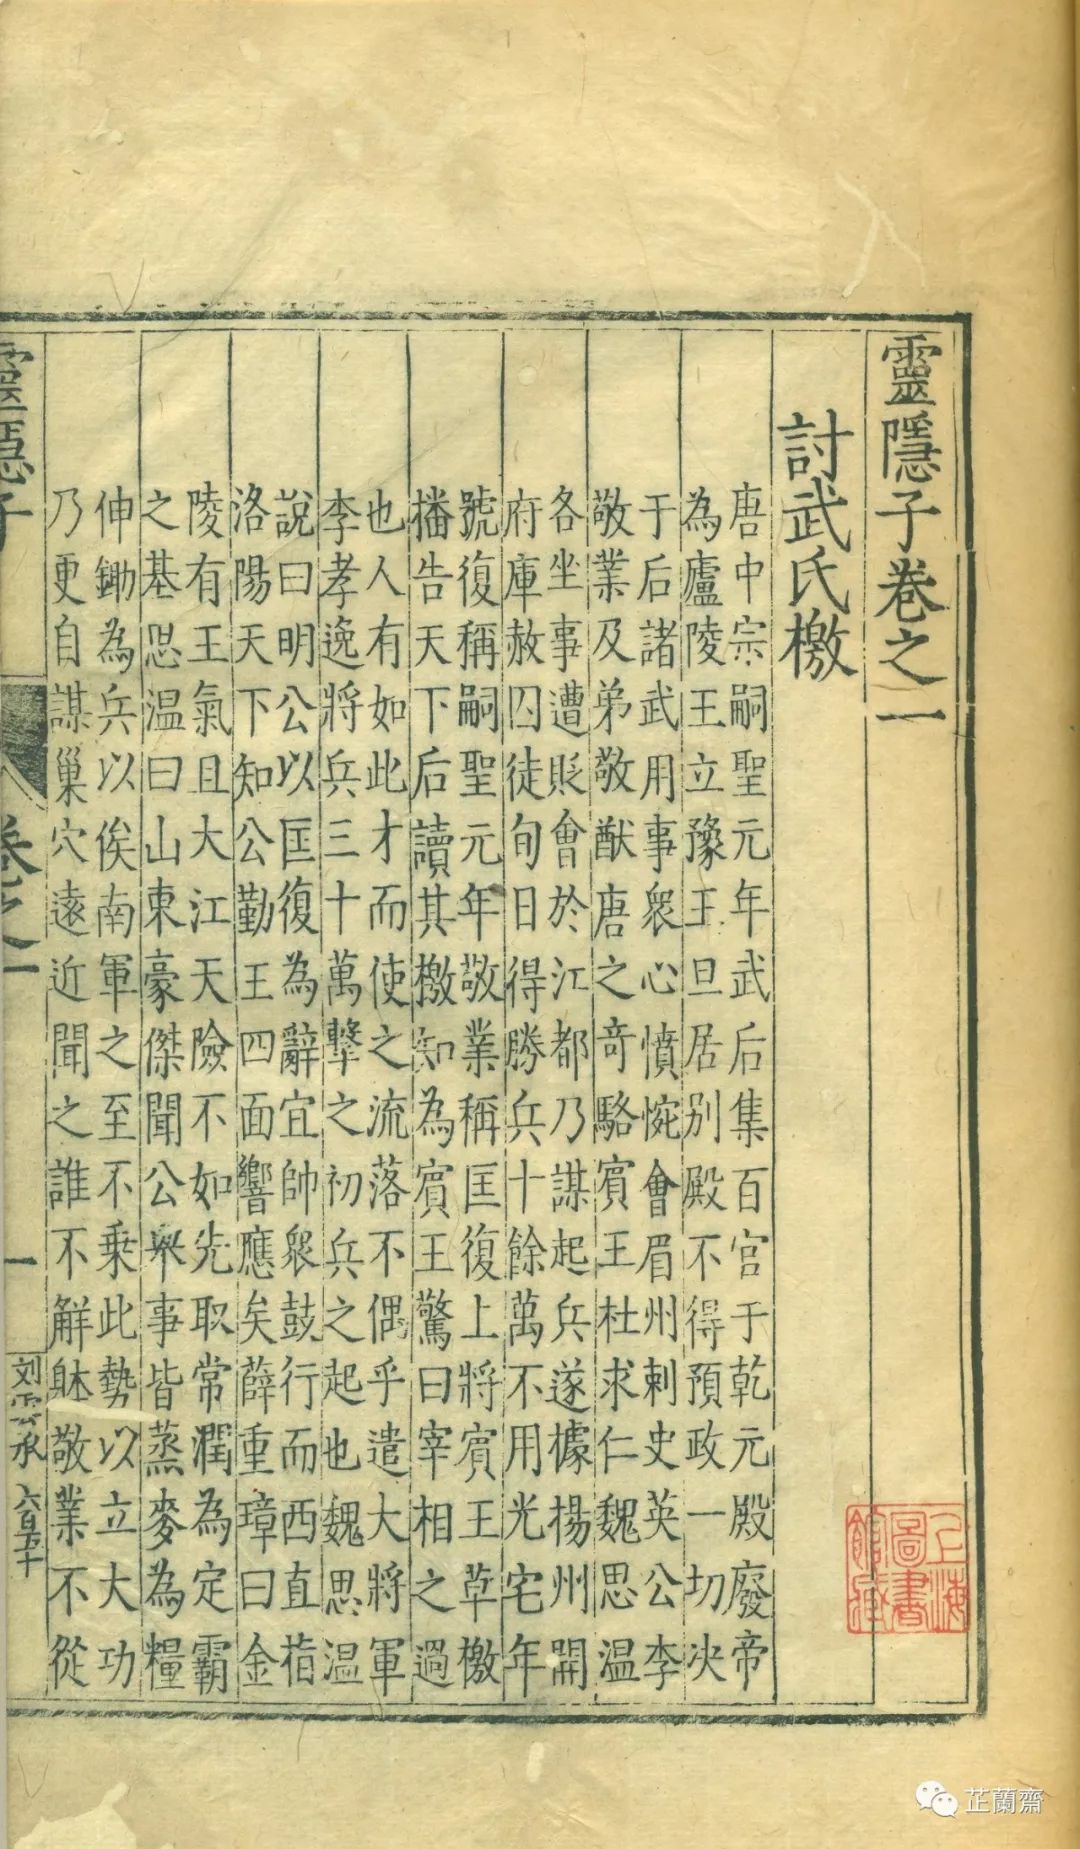 靈隱子卷之一
討武氏檄
唐中宗嗣聖元年武后集百官于乾元殿廢帝
為廬陵王立豫王旦居別殿不得預政一切決
于后諸武用事衆心憤惋會眉州刺史英公李
敬業及弟敬猷唐之奇駱賓王杜求仁魏思溫
各坐事遭貶會於江都乃謀起兵遂據楊州開
府庫赦囚徒旬日得勝兵十餘萬不用光宅年
號復稱嗣聖元年敬業稱匡復上將賓王草檄
播告天下后讀其檄知為賓王驚曰宰相之過
也人有如此才而使之流落不偶乎遣大將軍
李孝逸將兵三十萬擊之初兵之起也魏思溫
說曰明公以匡復為辭宜帥衆鼓行而西直指
洛陽天下知公勤王四面響應矣薛重璋曰金
陵有王氣且大江天險不如先取常潤為定霸
之基思溫曰山東豪傑聞公舉事皆蒸麥為糧
伸鋤為兵以俟南軍之至不乘此勢以立大功
乃更自謀巢穴遠近聞之誰不解躰敬業不從
靈隱子
卷之一
一
刘雲承 六百五十
上海圖書館藏
芷蘭齋